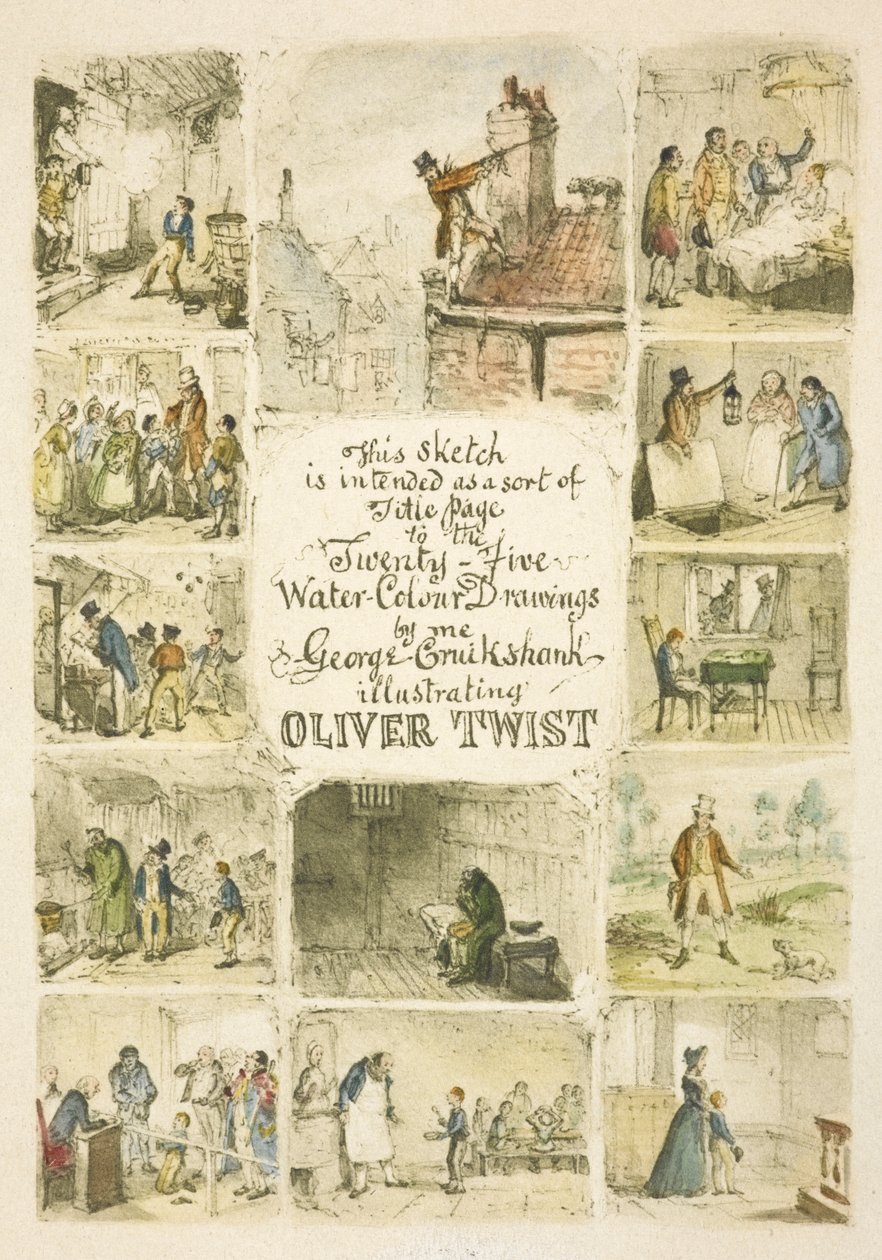 This sketch
is intended as a sort of
Title page
to the
Twenty-Five
Water-Colour Drawings
by me
George Cruikshank
illustrating
OLIVER TWIST